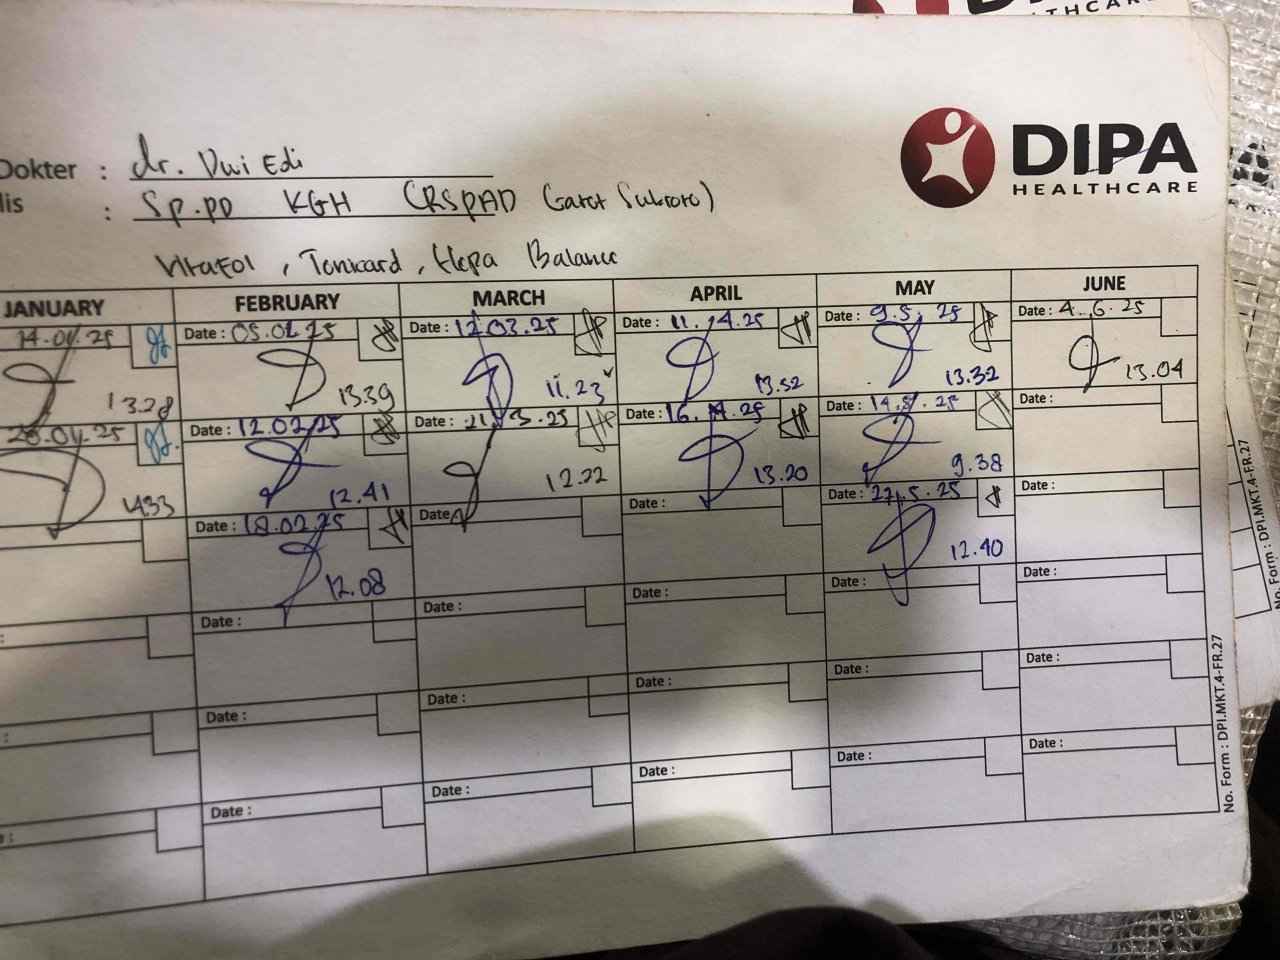 THCAR
DIPA
HEALTHCARE
Dokter : dr. Dwi Edi
lis : Sp.PD KGH (RSPAD Gatot Subroto)
Vitafol, Tonicard, Hepa Balance
JANUARY FEBRUARY MARCH APRIL MAY JUNE
14.01.25 Date : 05.02.25 Date : 12.03.25 Date : 11.4.25 Date : 9.5.25 Date : 4.6.25
13.28 13.39 11.23 13.52 13.32 13.04
Date : 12.02.25 Date : 21.3.25 Date : 16.4.25 Date : 14.5.25 Date :
1433 12.41 12.22 13.20 9.38
Date : 18.02.25 Date : Date : Date : 27.5.25 Date :
12.08 12.40
: Date : Date : Date : Date : Date :
: Date : Date : Date : Date : Date :
: Date : Date : Date : Date : Date :
No. Form : DPI.MKT.4-FR.27
No. Form : DPI.MKT.4-FR.27